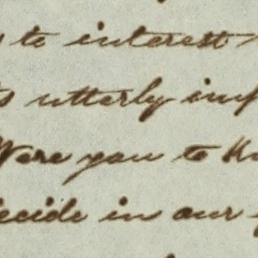 to interest
utterly
Were you to
decide in our